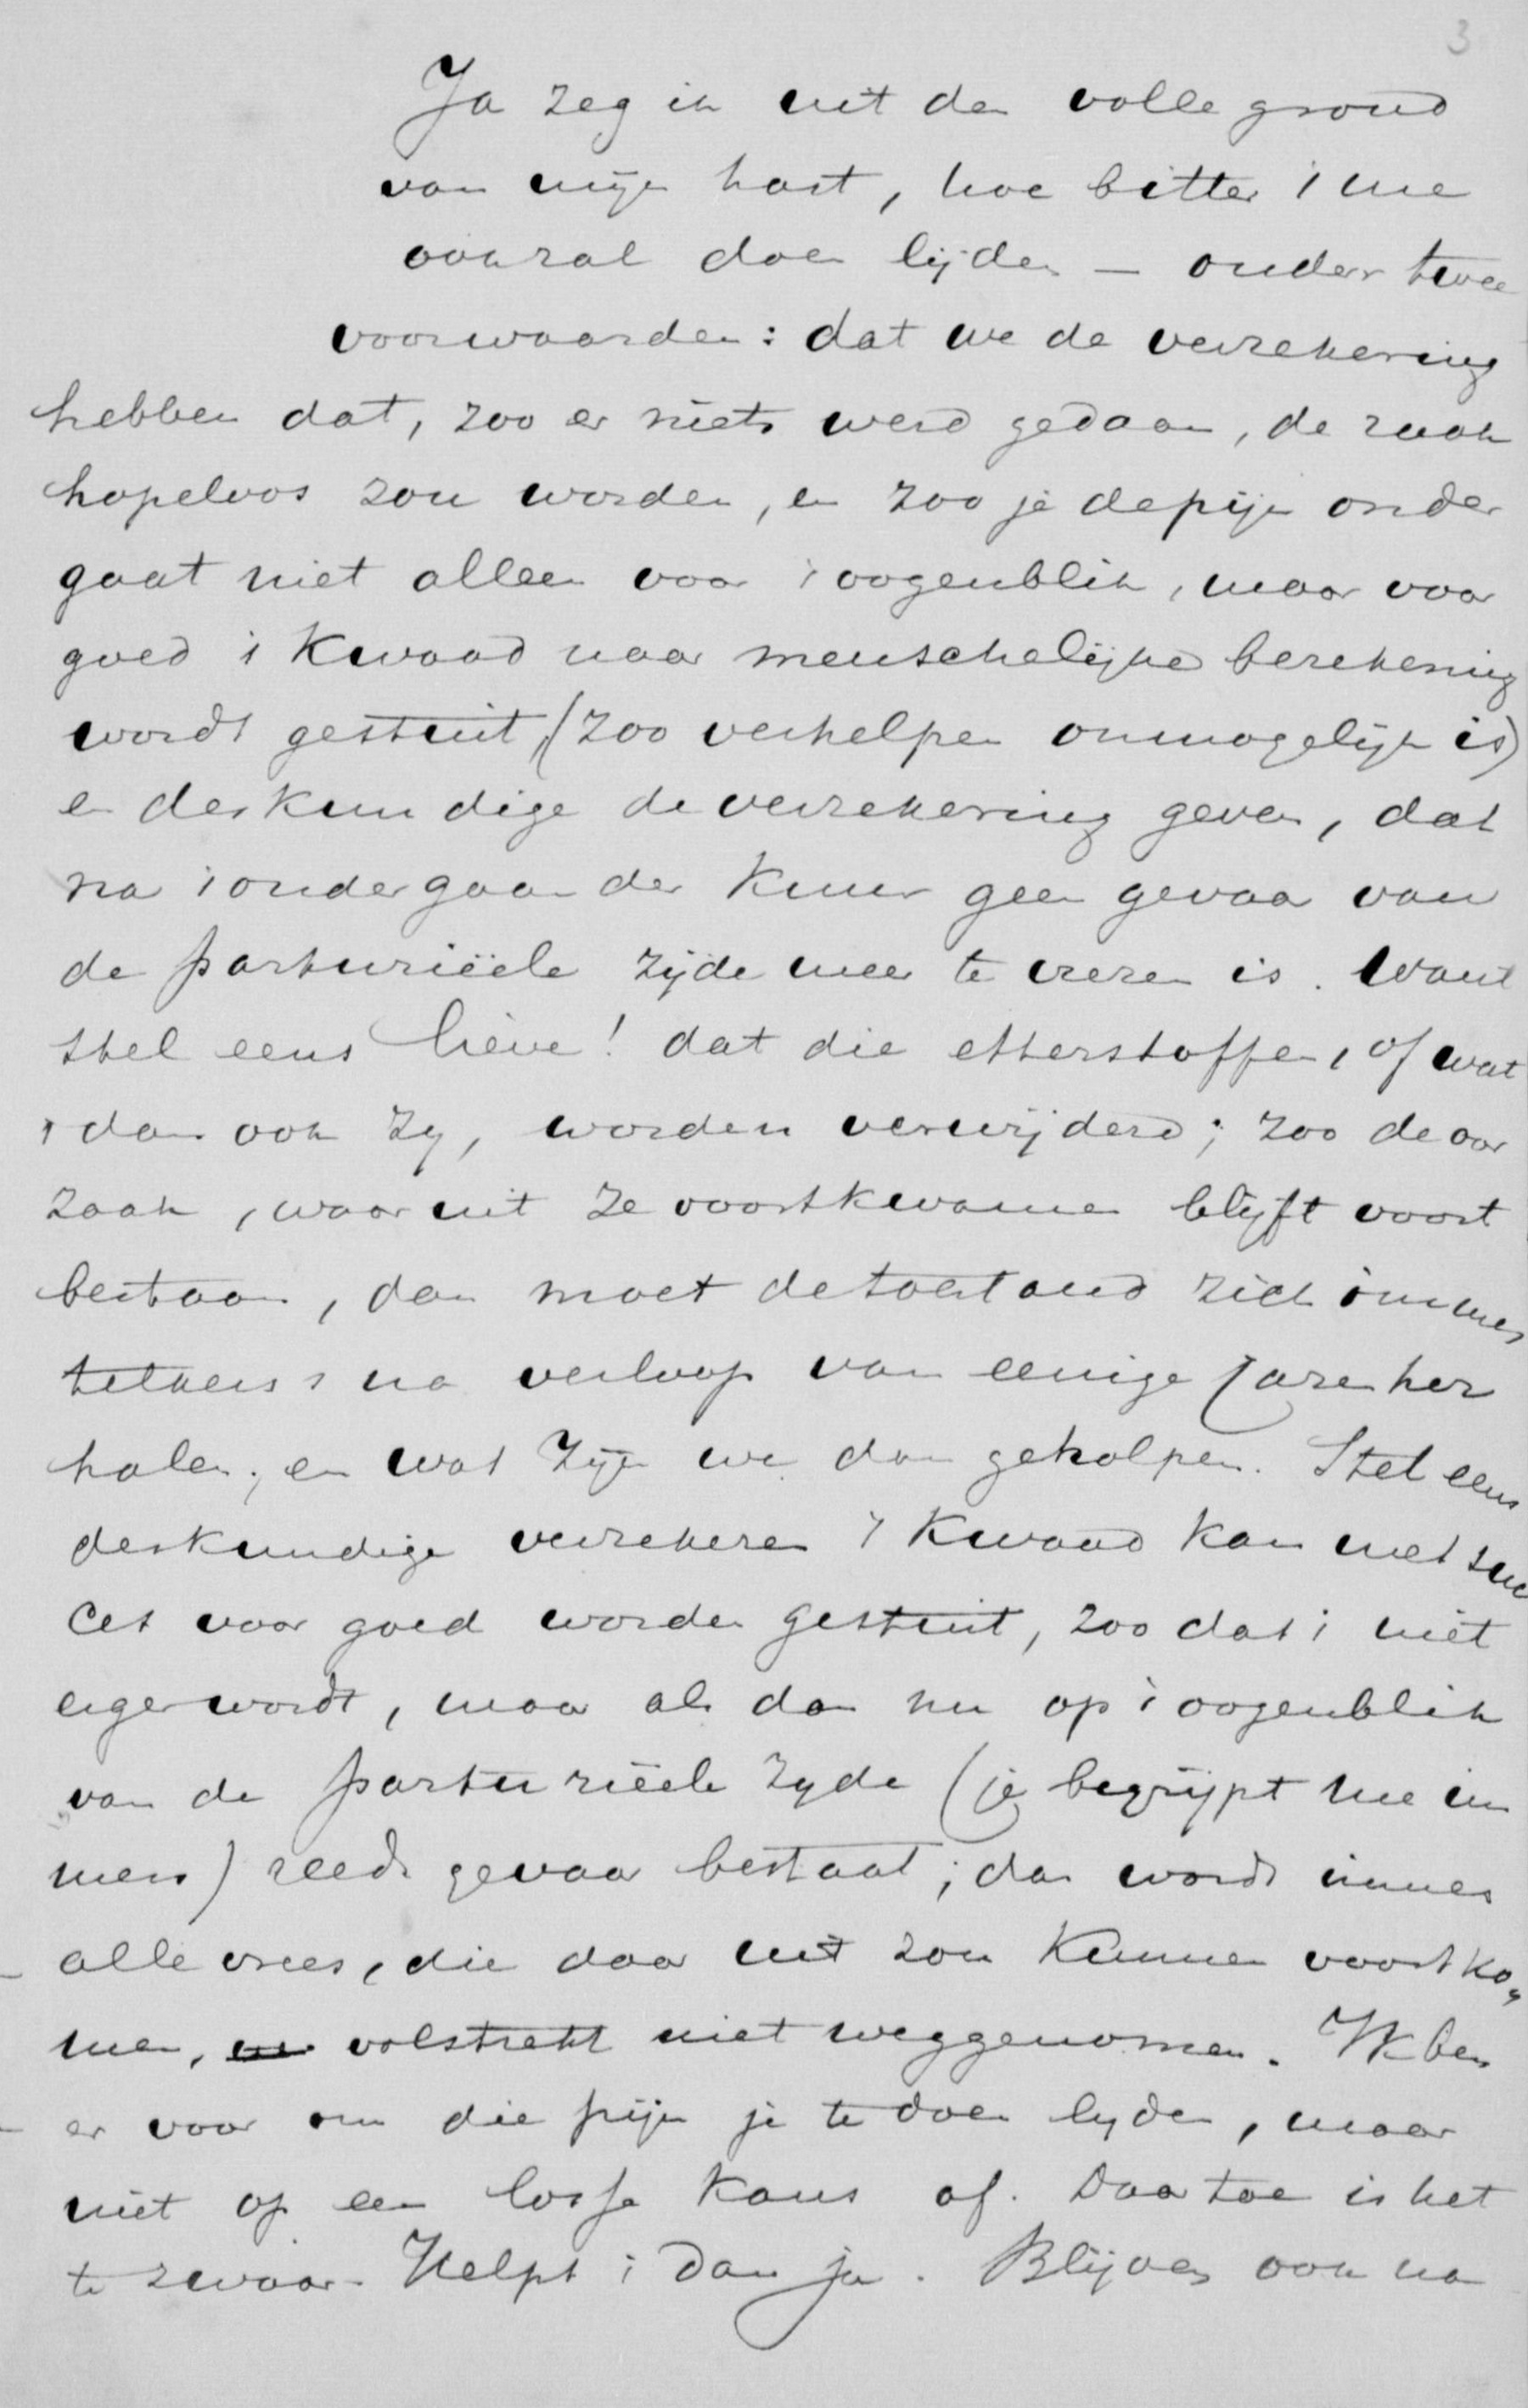 3
Ja zeg ik uit den volle grond
van mijn hart, hoe bitter 't me
ook zal doen lijden — onder twee
voorwaarden: dat we de verzekering
hebben dat, zoo er niets werd gedaan, de zaak
hopeloos zou worden, en zoo je de pijn onder
gaat niet alleen voor 't oogenblik, maar voor
goed 't kwaad naar menschelijke berekening
wordt gestuit, (zoo verhelpen onmogelijk is)
en deskundige de verzekering geven, dat
na 't ondergaan der kuur geen gevaar van
de parturiëele zijde meer te vrezen is. Want
stel eens lieve! dat die etterstoffen, of wat
't dan ook zij, worden verwijderd; zoo de oor
zaak, waaruit ze voortkwamen blijft voort
bestaan, dan moet de toestand zich immers
telkens na verloop van eenige jaren her
halen; en wat zijn we dan geholpen. Stel eens
deskundige verzekeren 't kwaad kan met suc
ces voor goed worden gestuit, zoo dat 't niet
erger wordt, maar als dan nu op 't oogenblik
van de parturiëele zijde (je begrijpt me im
mers) reeds gevaar bestaat; dan wordt immers
alle vrees, die daar uit zou kunnen voortko,
men, volstrekt niet weggenomen. Ik ben
er voor om die pijn je te doen lijden, maar
niet op een losse kans af. Daartoe is het
te zwaar. Helpt 't dan ja. Blijven ook na